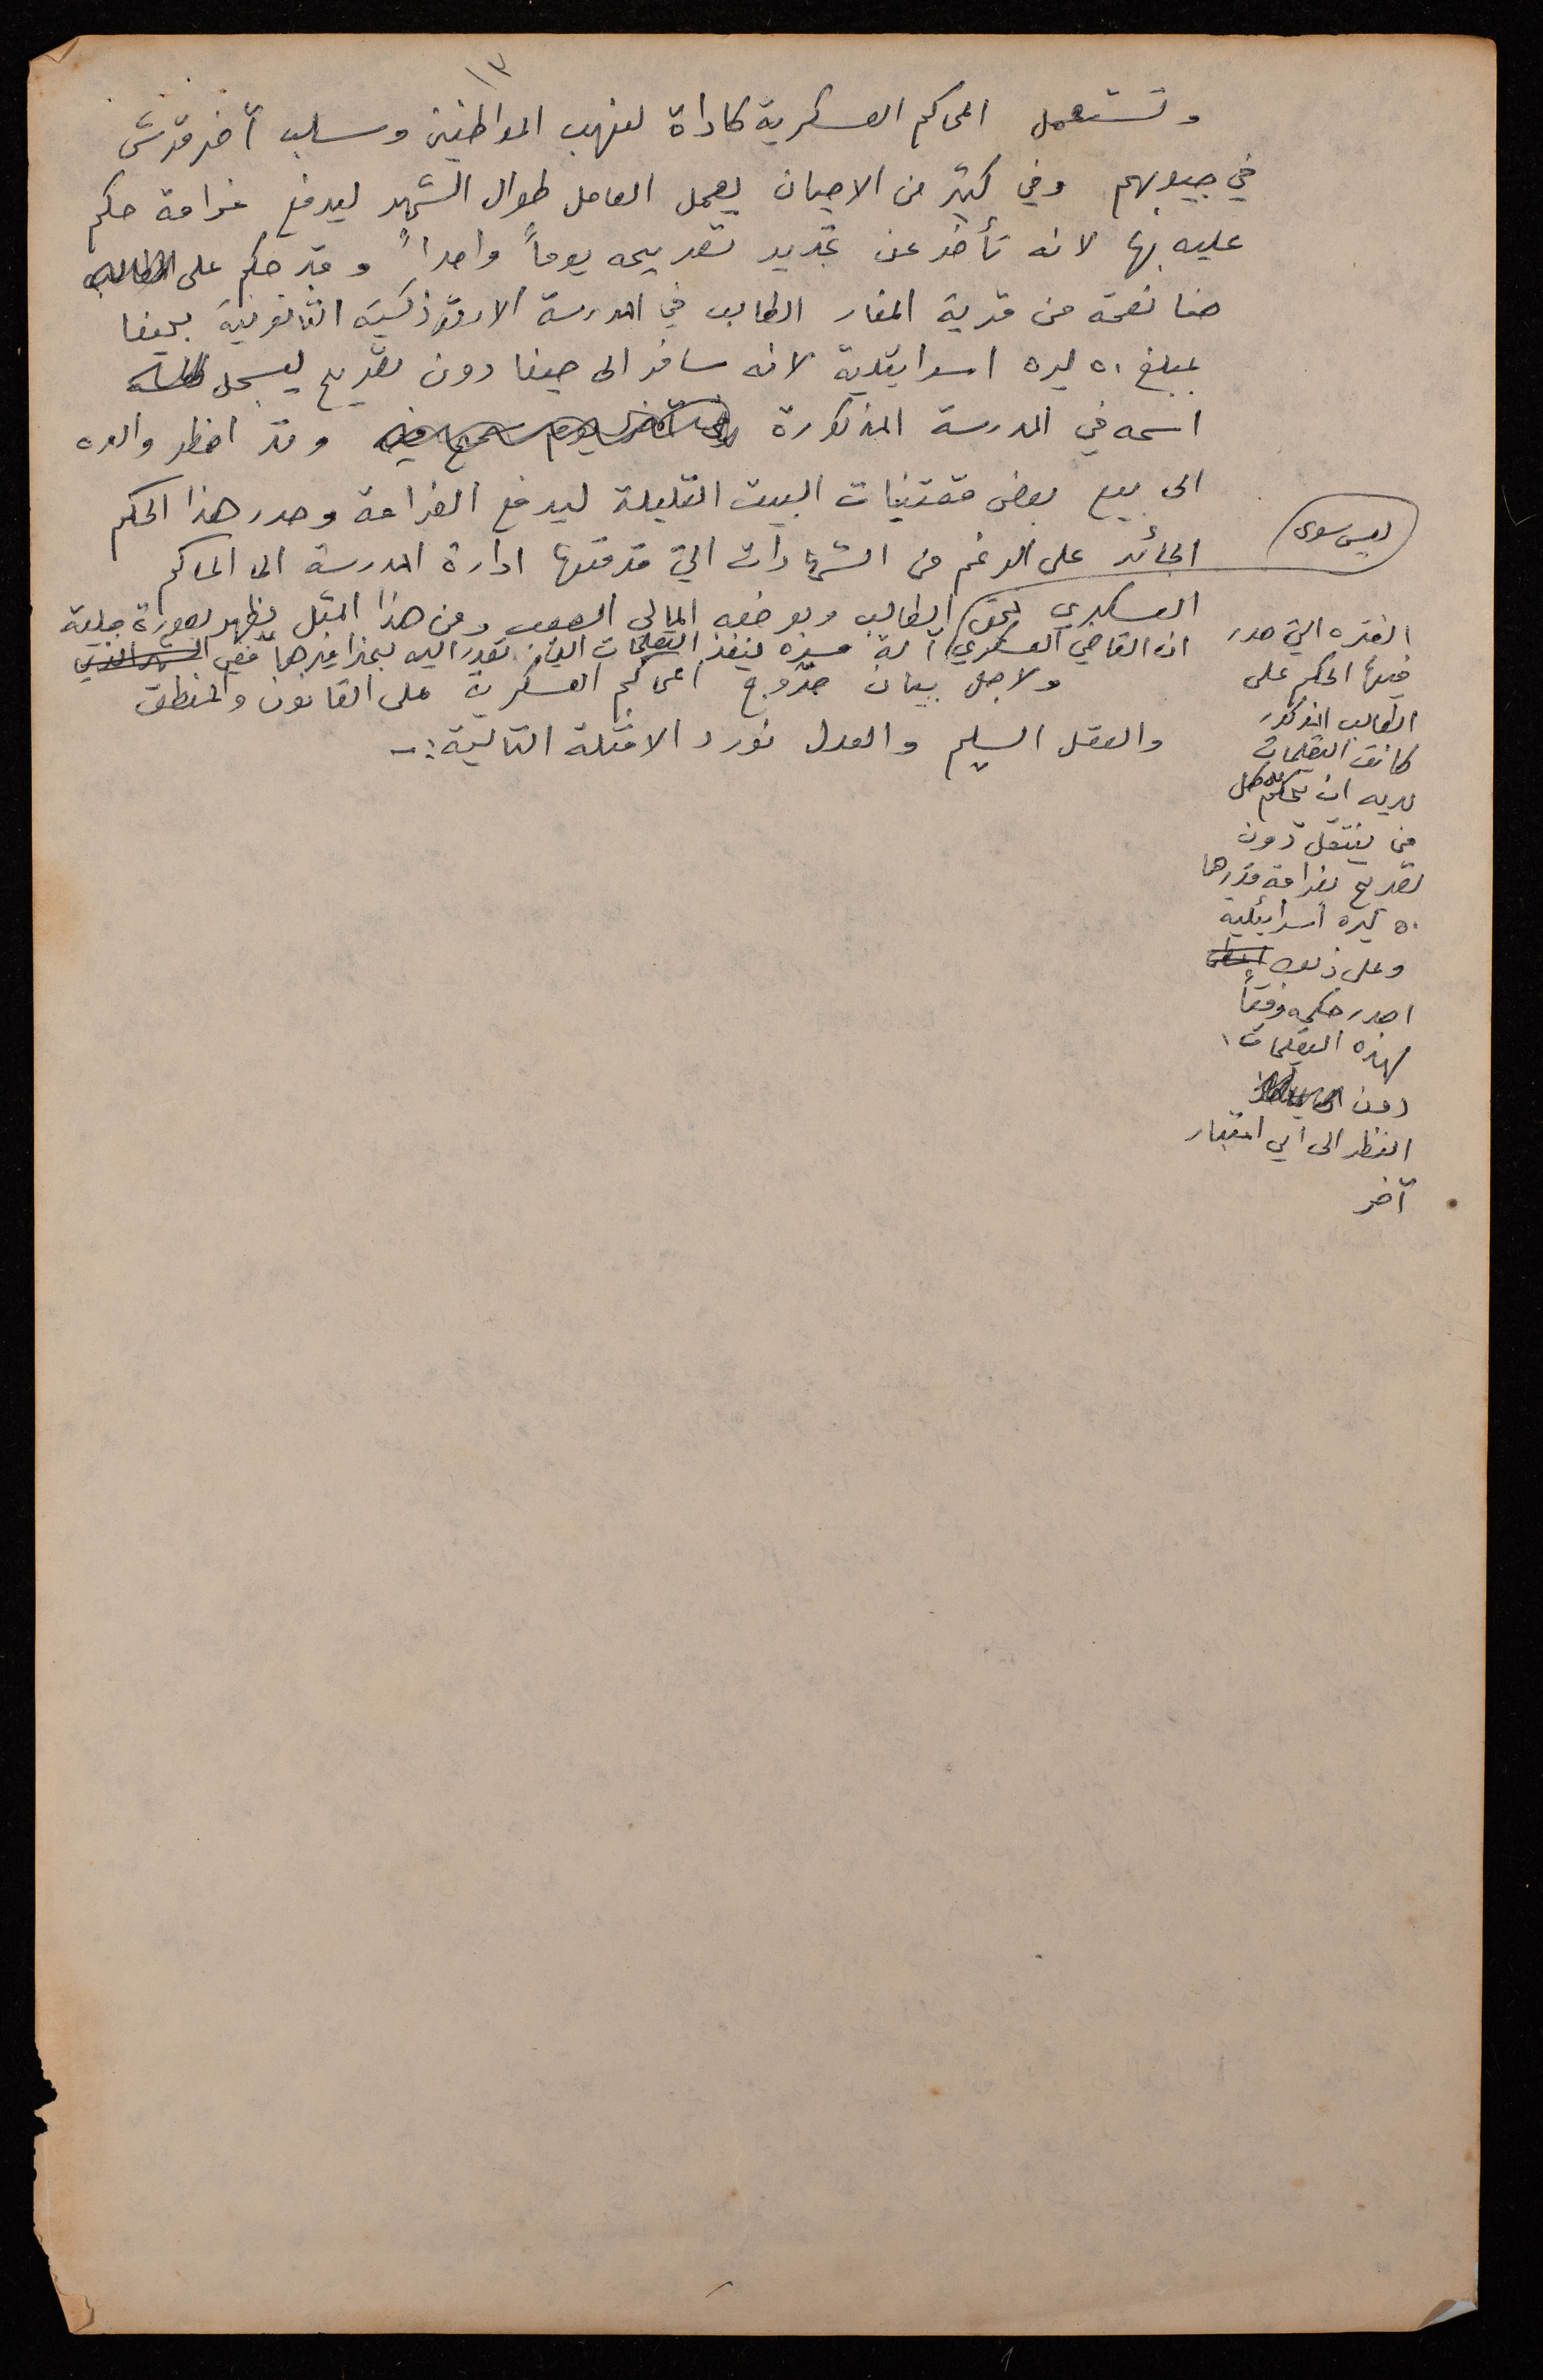 ١٣
وتستعمل المحاكم العسكرية كاداة لنهب المواطنين وسلب آخر قرش
في جيوبهم وفي كثير من الاحيان يعمل العامل طوال الشهر ليدفع غرامة حكم
عليه بها لانه تأخر عن تجديد تصريحه يوماً واحداً وقد حكم على الطالب
حنا نعمة من قرية المغار الطالب في المدرسة الارثوذكسية الثانوية بحيفا
بمبلغ ٥٠ ليره اسرائيلية لانه سافر الى حيفا دون تصريح ليسجل
اسمه في المدرسة المذكورة وقد اضطر والده
الى بيع بعض مقتنيات البيت القليلة ليدفع الغرامة وصدر هذا الحكم
الجائر على الرغم من الشهادات التي قدمتها ادارة المدرسة الى الحاكم
العسكري بحق الطالب وبوضعه المالي الصعب ومن هذا المثل يظهر بصورة جلية
ان القاضي العسكري ليس سوى آلة مسيره لينفذ التعليمات التي تصدر اليه بحذافيرها ففي
ولاجل بيان خروج المحاكم العسكرية على القانون والمنطق
والعقل السليم والعدل نورد الامثلة التالية :-
الفتره التي صدر
فيها الحكم على
الطالب المذكور
كانت التعليمات
لديه ان يحكم كل
من يتنقل دون
تصريح بغرامة قدرها
٥٠ ليره اسرائيلية
وعلى ذلك
اصدر حكمه وفقاً
لهذه التعليمات
دون
النظر الى اي اعتبار
آخر